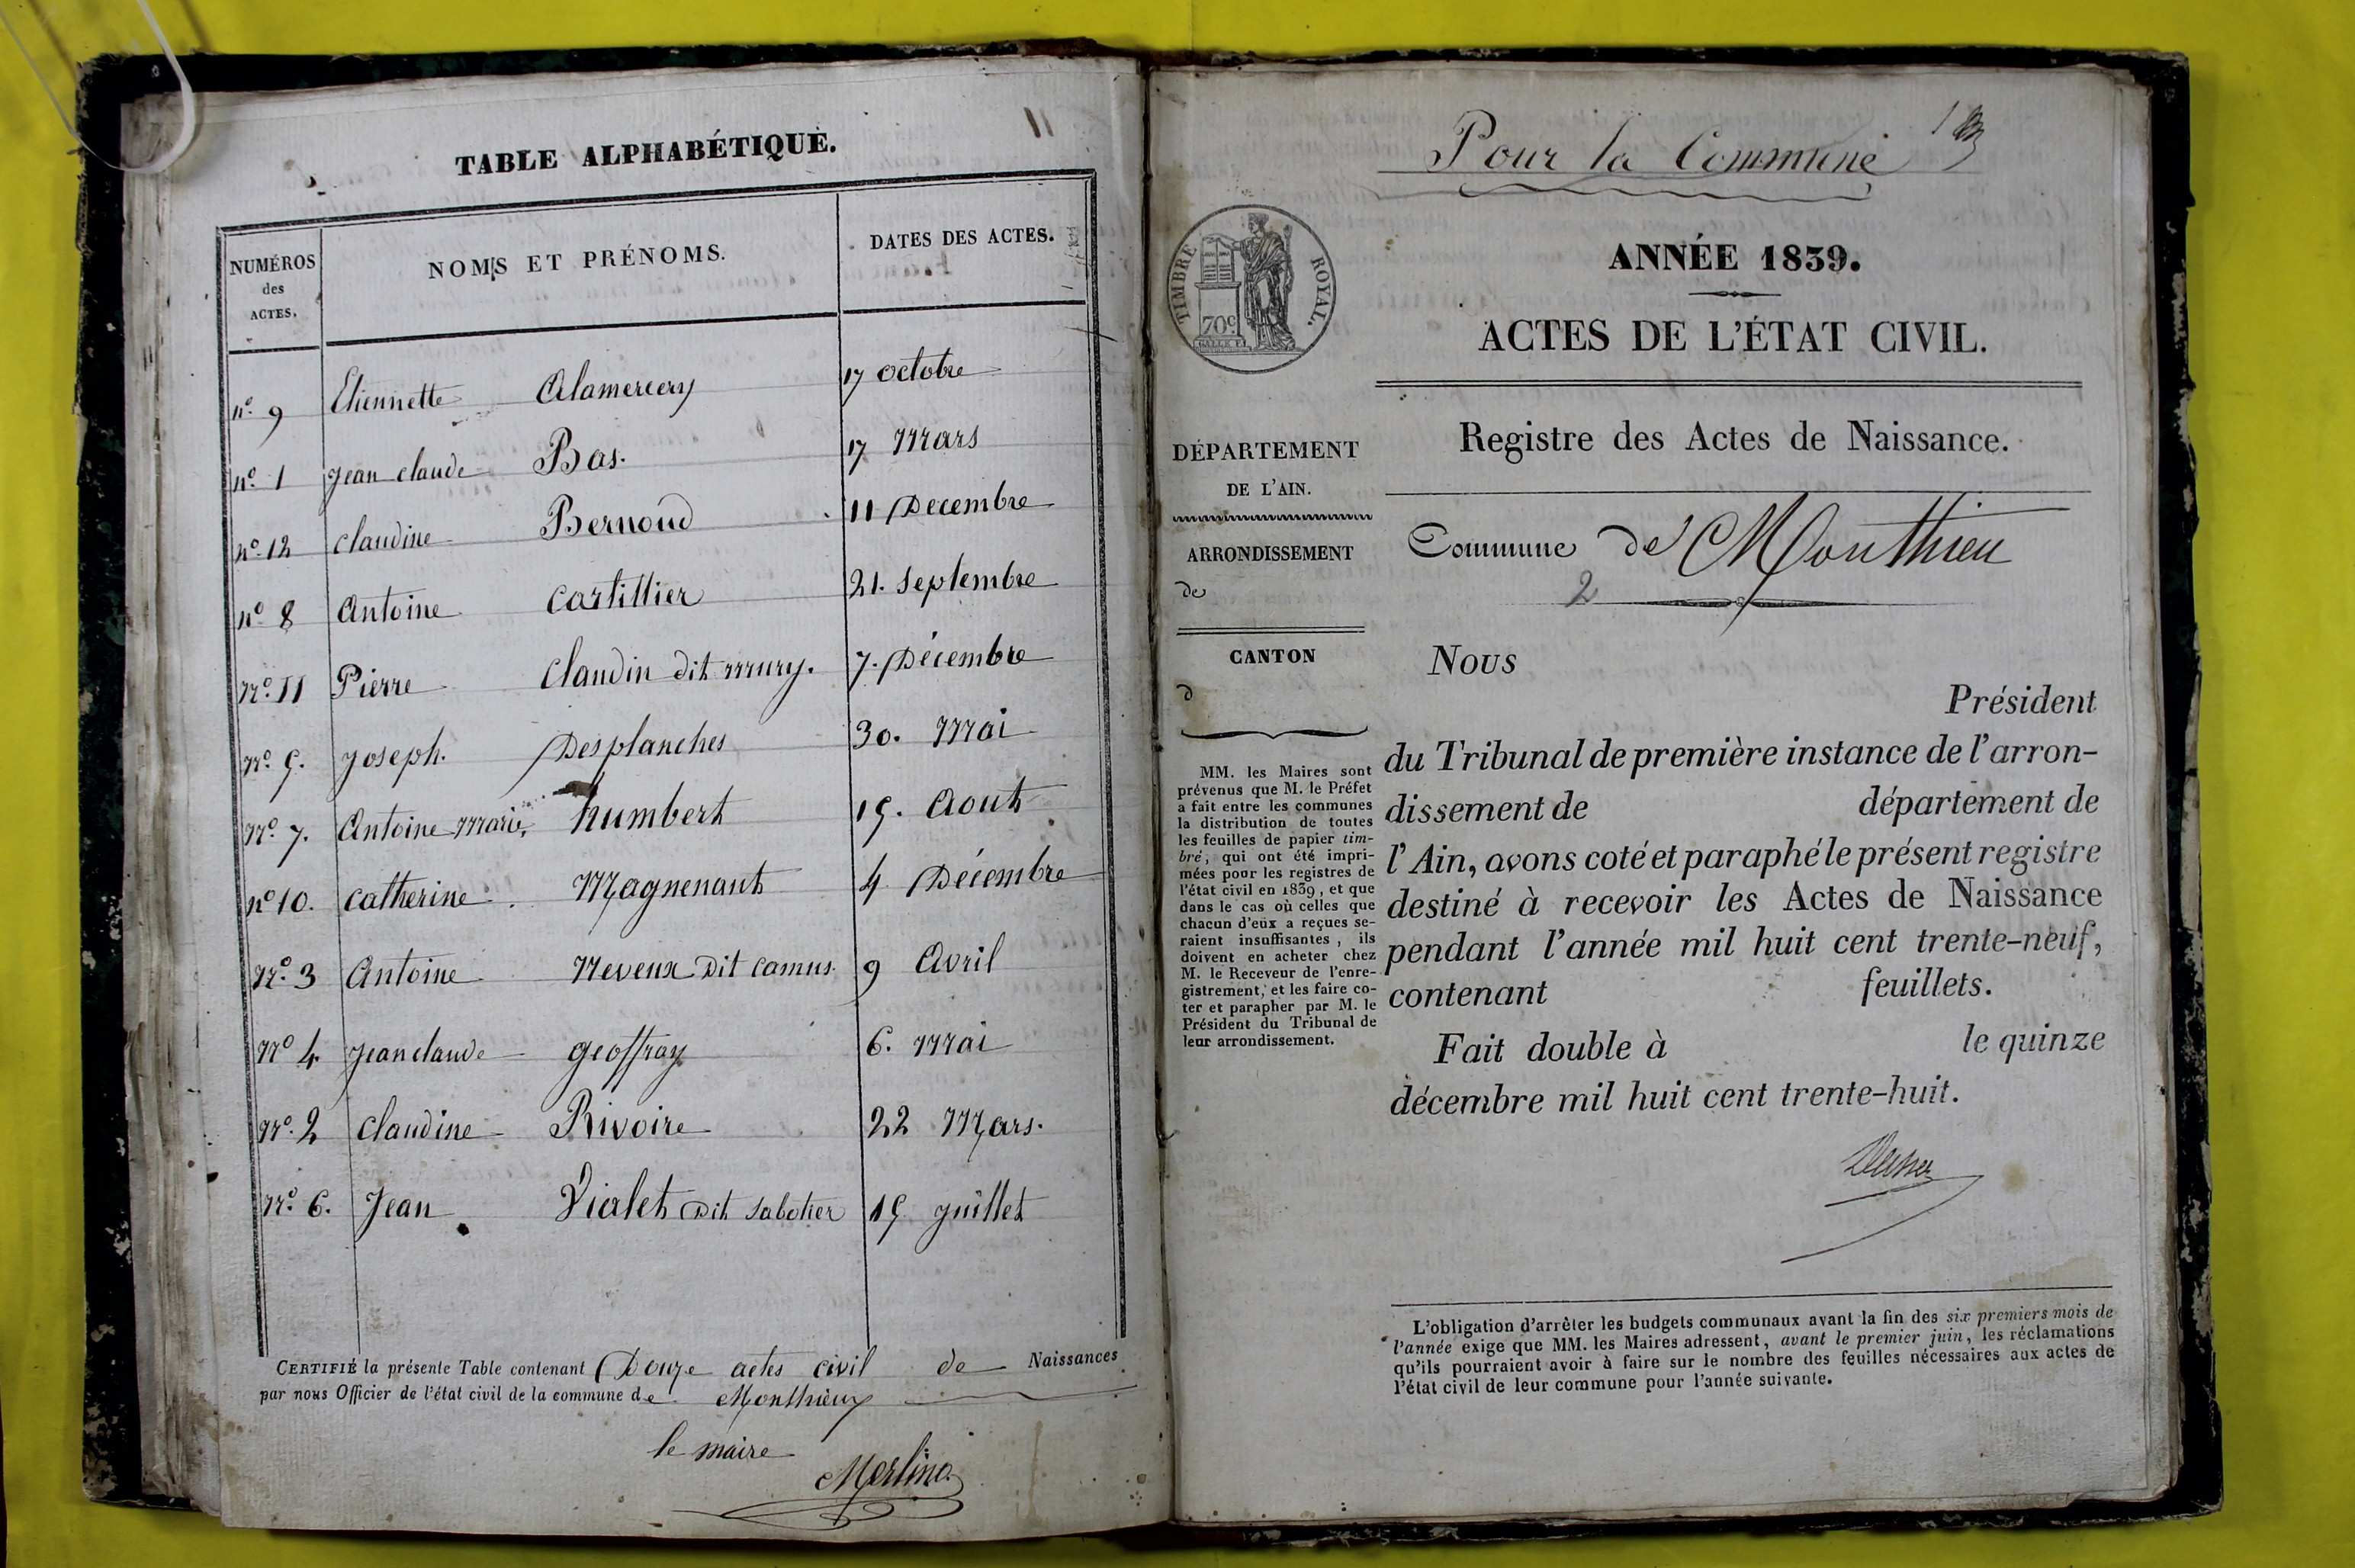 11
TABLE ALPHABÉTIQUE.
NUMÉROS des ACTES. NOMS ET PRÉNOMS. DATES DES ACTES.
n.º 9 Etiennette Alamercery 17 octobre
n.º 1 Jean claude Bas. 17 Mars
n.º 12 claudine Bernoud 11 Decembre
n.º 8 Antoine Cartillier 21. Septembre
N.º 11 Pierre Claudin dit mury. 7. Décembre
N.º 5. Joseph. Desplanches 30. Mai
N.º 7. Antoine Marie, humbert 15. Aout
n.º 10. Catherine Magnenant 4 Décembre
N.º 3 Antoine Neveux Dit Camus. 9 Avril
N.º 4 Jean claude geoffray 6. Mai
N.º 2 Claudine Rivoire 22 Mars.
N.º 6. Jean Vialet Dit Sabotier 15 Juillet
CERTIFIÉ la présente Table contenant Douze actes civil de Naissances
par nous Officier de l'état civil de la commune de Monthieux
le maire
Merlino
Pour la Commune
TIMBRE ROYAL.
70c
ANNÉE 1839.
ACTES DE L'ÉTAT CIVIL.
Registre des Actes de Naissance.
Commune de Monthieu
2
DÉPARTEMENT
DE L'AIN.
ARRONDISSEMENT
de
CANTON
d
MM. les Maires sont
prévenus que M. le Préfet
a fait entre les communes
la distribution de toutes
les feuilles de papier tim-
bré, qui ont été impri-
mées pour les registres de
l'état civil en 1839, et que
dans le cas où celles que
chacun d'eux a reçues se-
raient insuffisantes, ils
doivent en acheter chez
M. le Receveur de l'enre-
gistrement, et les faire co-
ter et parapher par M. le
Président du Tribunal de
leur arrondissement.
Nous
Président
du Tribunal de première instance de l'arron-
dissement de département de
l'Ain, avons coté et paraphé le présent registre
destiné à recevoir les Actes de Naissance
pendant l'année mil huit cent trente-neuf,
contenant feuillets.
Fait double à le quinze
décembre mil huit cent trente-huit.
L'obligation d'arrêter les budgets communaux avant la fin des six premiers mois de
l'année exige que MM. les Maires adressent, avant le premier juin, les réclamations
qu'ils pourraient avoir à faire sur le nombre des feuilles nécessaires aux actes de
l'état civil de leur commune pour l'année suivante.